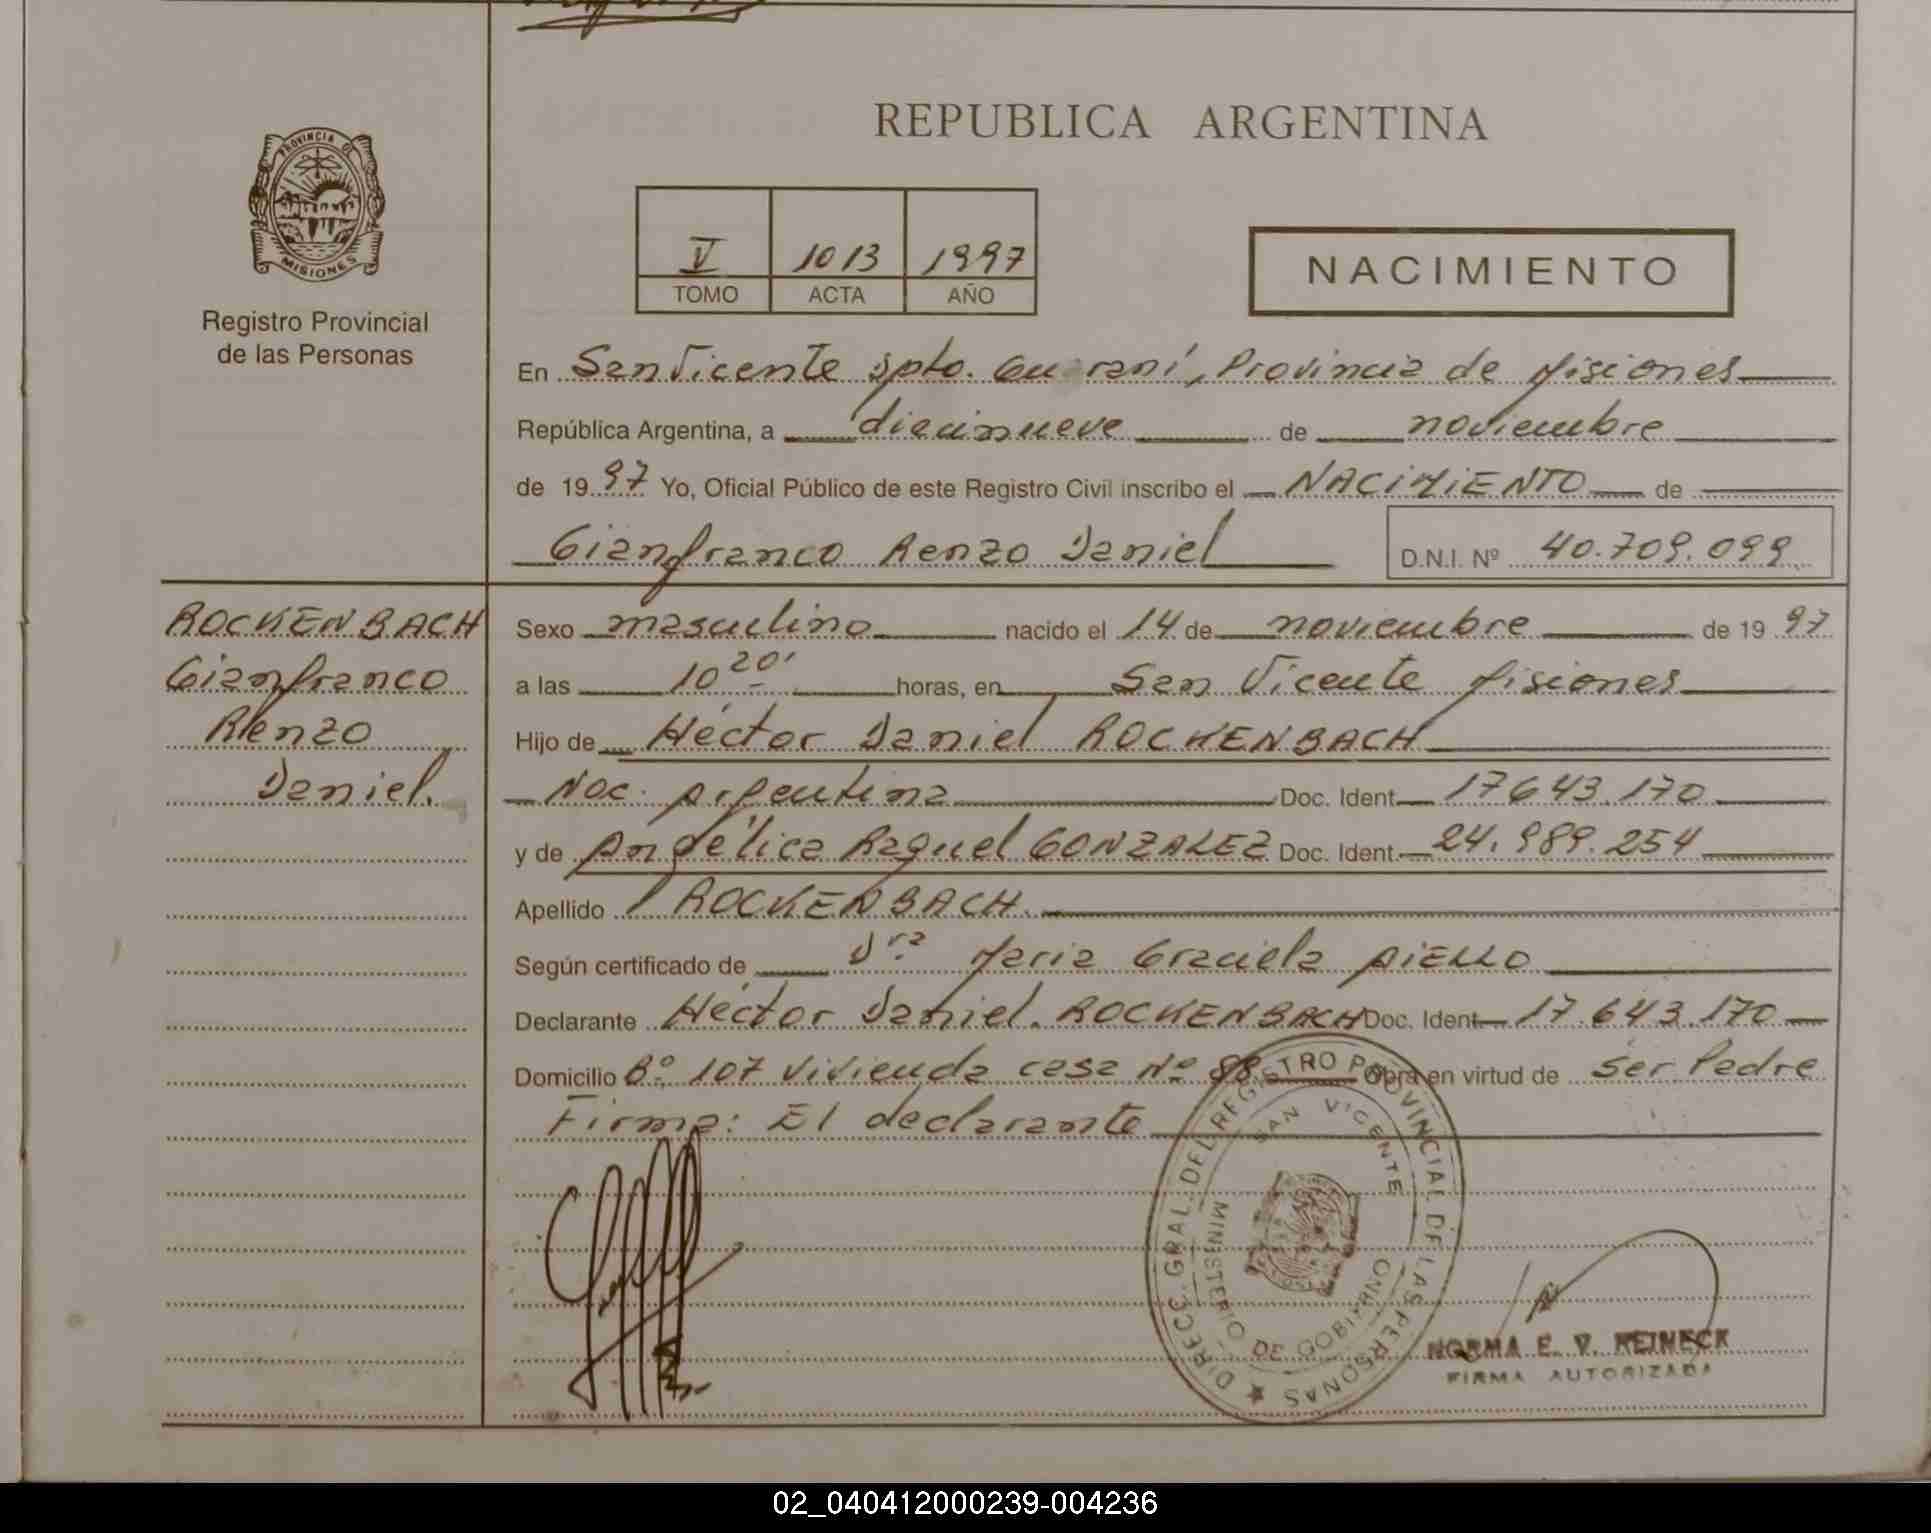 REPUBLICA ARGENTINA
PROVINCIA DE
MISIONES
Registro Provincial
de las Personas
V 1013 1997
TOMO ACTA AÑO
NACIMIENTO
En San Vicente Dpto. Guaraní, Provincia de Misiones
República Argentina, a diecinueve de noviembre
de 1997 Yo, Oficial Público de este Registro Civil inscribo el NACIMIENTO de
Gianfranco Renzo Daniel D.N.I. Nº 40.709.099
ROCKENBACH
Gianfranco
Renzo
Daniel.
Sexo masculino nacido el 14 de noviembre de 1997
a las 10 20' horas, en San Vicente Misiones
Hijo de Héctor Daniel ROCKENBACH
Nac. Argentina Doc. Ident. 17643.170
y de Angélica Raquel GONZALEZ Doc. Ident. 24.989.254
Apellido ROCKENBACH.
Según certificado de Dra Maria Graciela AIELLO
Declarante Héctor Daniel. ROCKENBACH Doc. Ident. 17.643.170
Domicilio Bº 107 Vivienda casa Nº 88 Obra en virtud de ser Padre
Firma: El declarante
DIRECC. GRAL. DEL REGISTRO PROVINCIAL DE LAS PERSONAS
SAN VICENTE
MINISTERIO DE GOBIERNO
NORMA E. V. REINECK
FIRMA AUTORIZADA
02_040412000239-004236